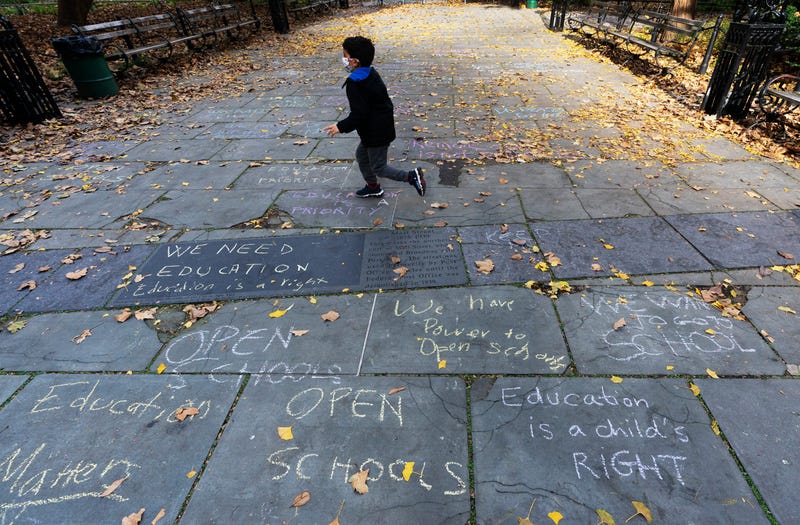 EDUCATION
PRIORITY
EDUCATION
IS A
PRIORITY
WE NEED
EDUCATION
Education is a right
KEEP
OPEN
SCHOOLS
We have
Power to
Open schools
WE WANT
TO GO TO
SCHOOL
Education
Matters
OPEN
SCHOOLS
Education
is a child's
RIGHT